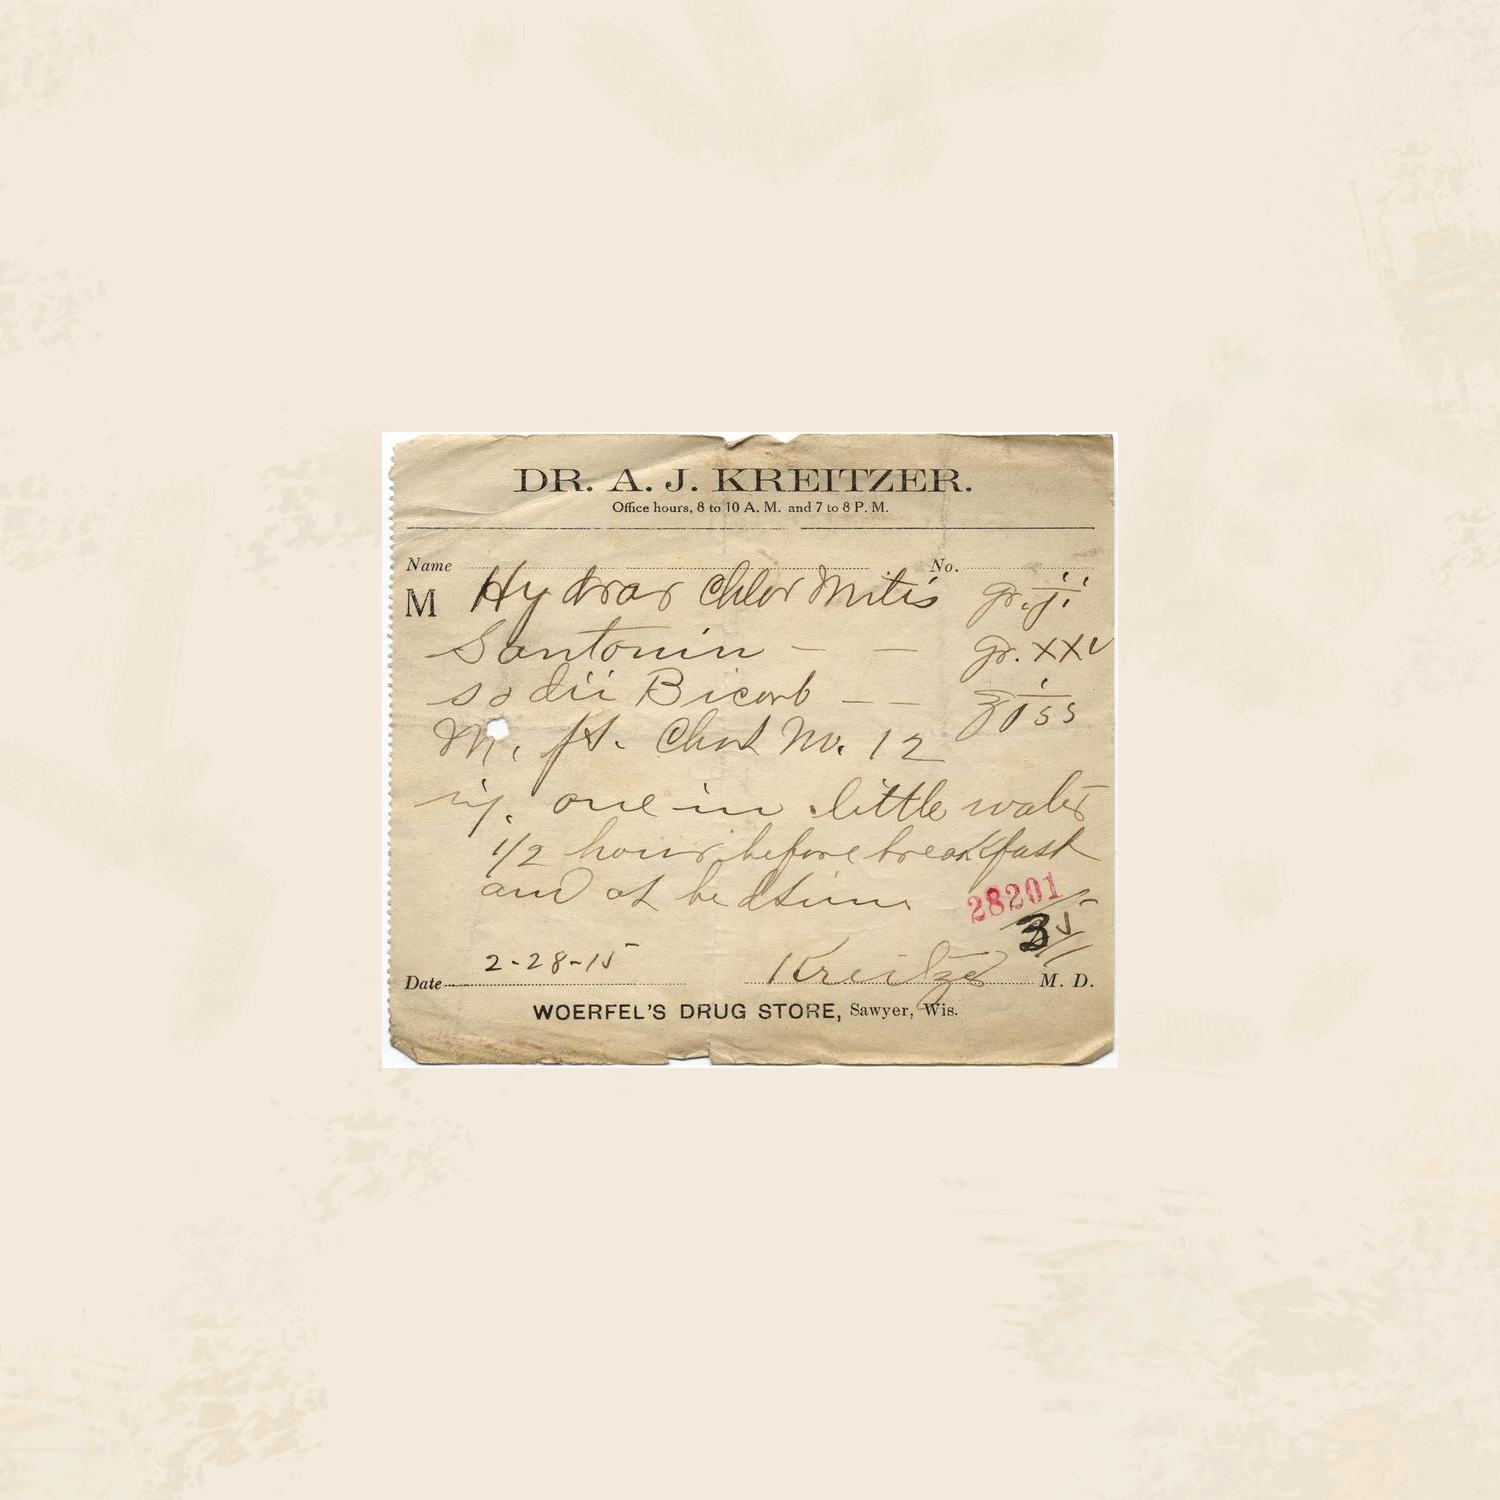 DR. A. J. KREITZER.
Office hours, 8 to 10 A. M. and 7 to 8 P. M.
Name No.
M Hydrar Chlor Mitis gr. ij
Santonin — — gr. XXV
sodii Bicarb — — ʒiss
M. ft. Chart No. 12
sig. one in little water
1/2 hour before breakfast
and at bedtime
28201
2-28-15
Date Kreitzer M. D.
WOERFEL'S DRUG STORE, Sawyer, Wis.